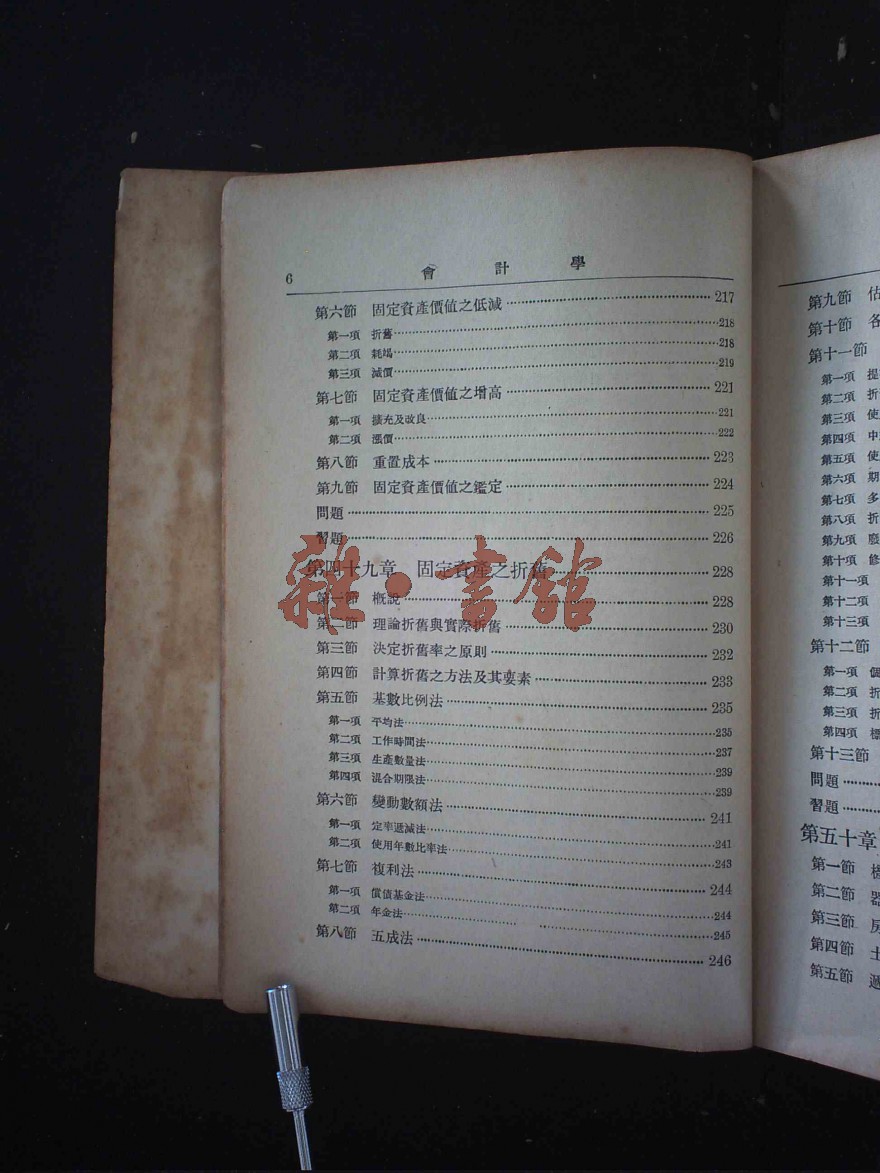 6 會計學
第六節 固定資產價值之低減 217
第一項 折舊 218
第二項 耗竭 218
第三項 減價 219
第七節 固定資產價值之增高 221
第一項 擴充及改良 221
第二項 漲價 222
第八節 重置成本 223
第九節 固定資產價值之鑑定 224
問題 225
習題 226
第四十九章 固定資產之折舊 228
第一節 概說 228
第二節 理論折舊與實際折舊 230
第三節 決定折舊率之原則 232
第四節 計算折舊之方法及其要素 233
第五節 基數比例法 235
第一項 平均法 235
第二項 工作時間法 237
第三項 生產數量法 239
第四項 混合期限法 239
第六節 變動數額法 241
第一項 定率遞減法 241
第二項 使用年數比率法 243
第七節 複利法 244
第一項 償債基金法 244
第二項 年金法 245
第八節 五成法 246
雜·書館
第九節 估
第十節 各
第十一節
第一項 提
第二項 折
第三項 使
第四項 中
第五項 使
第六項 期
第七項 多
第八項 折
第九項 廢
第十項 修
第十一項
第十二項
第十三項
第十二節
第一項 個
第二項 折
第三項 折
第四項 標
第十三節
問題
習題
第五十章
第一節 機
第二節 器
第三節 房
第四節 土
第五節 遞